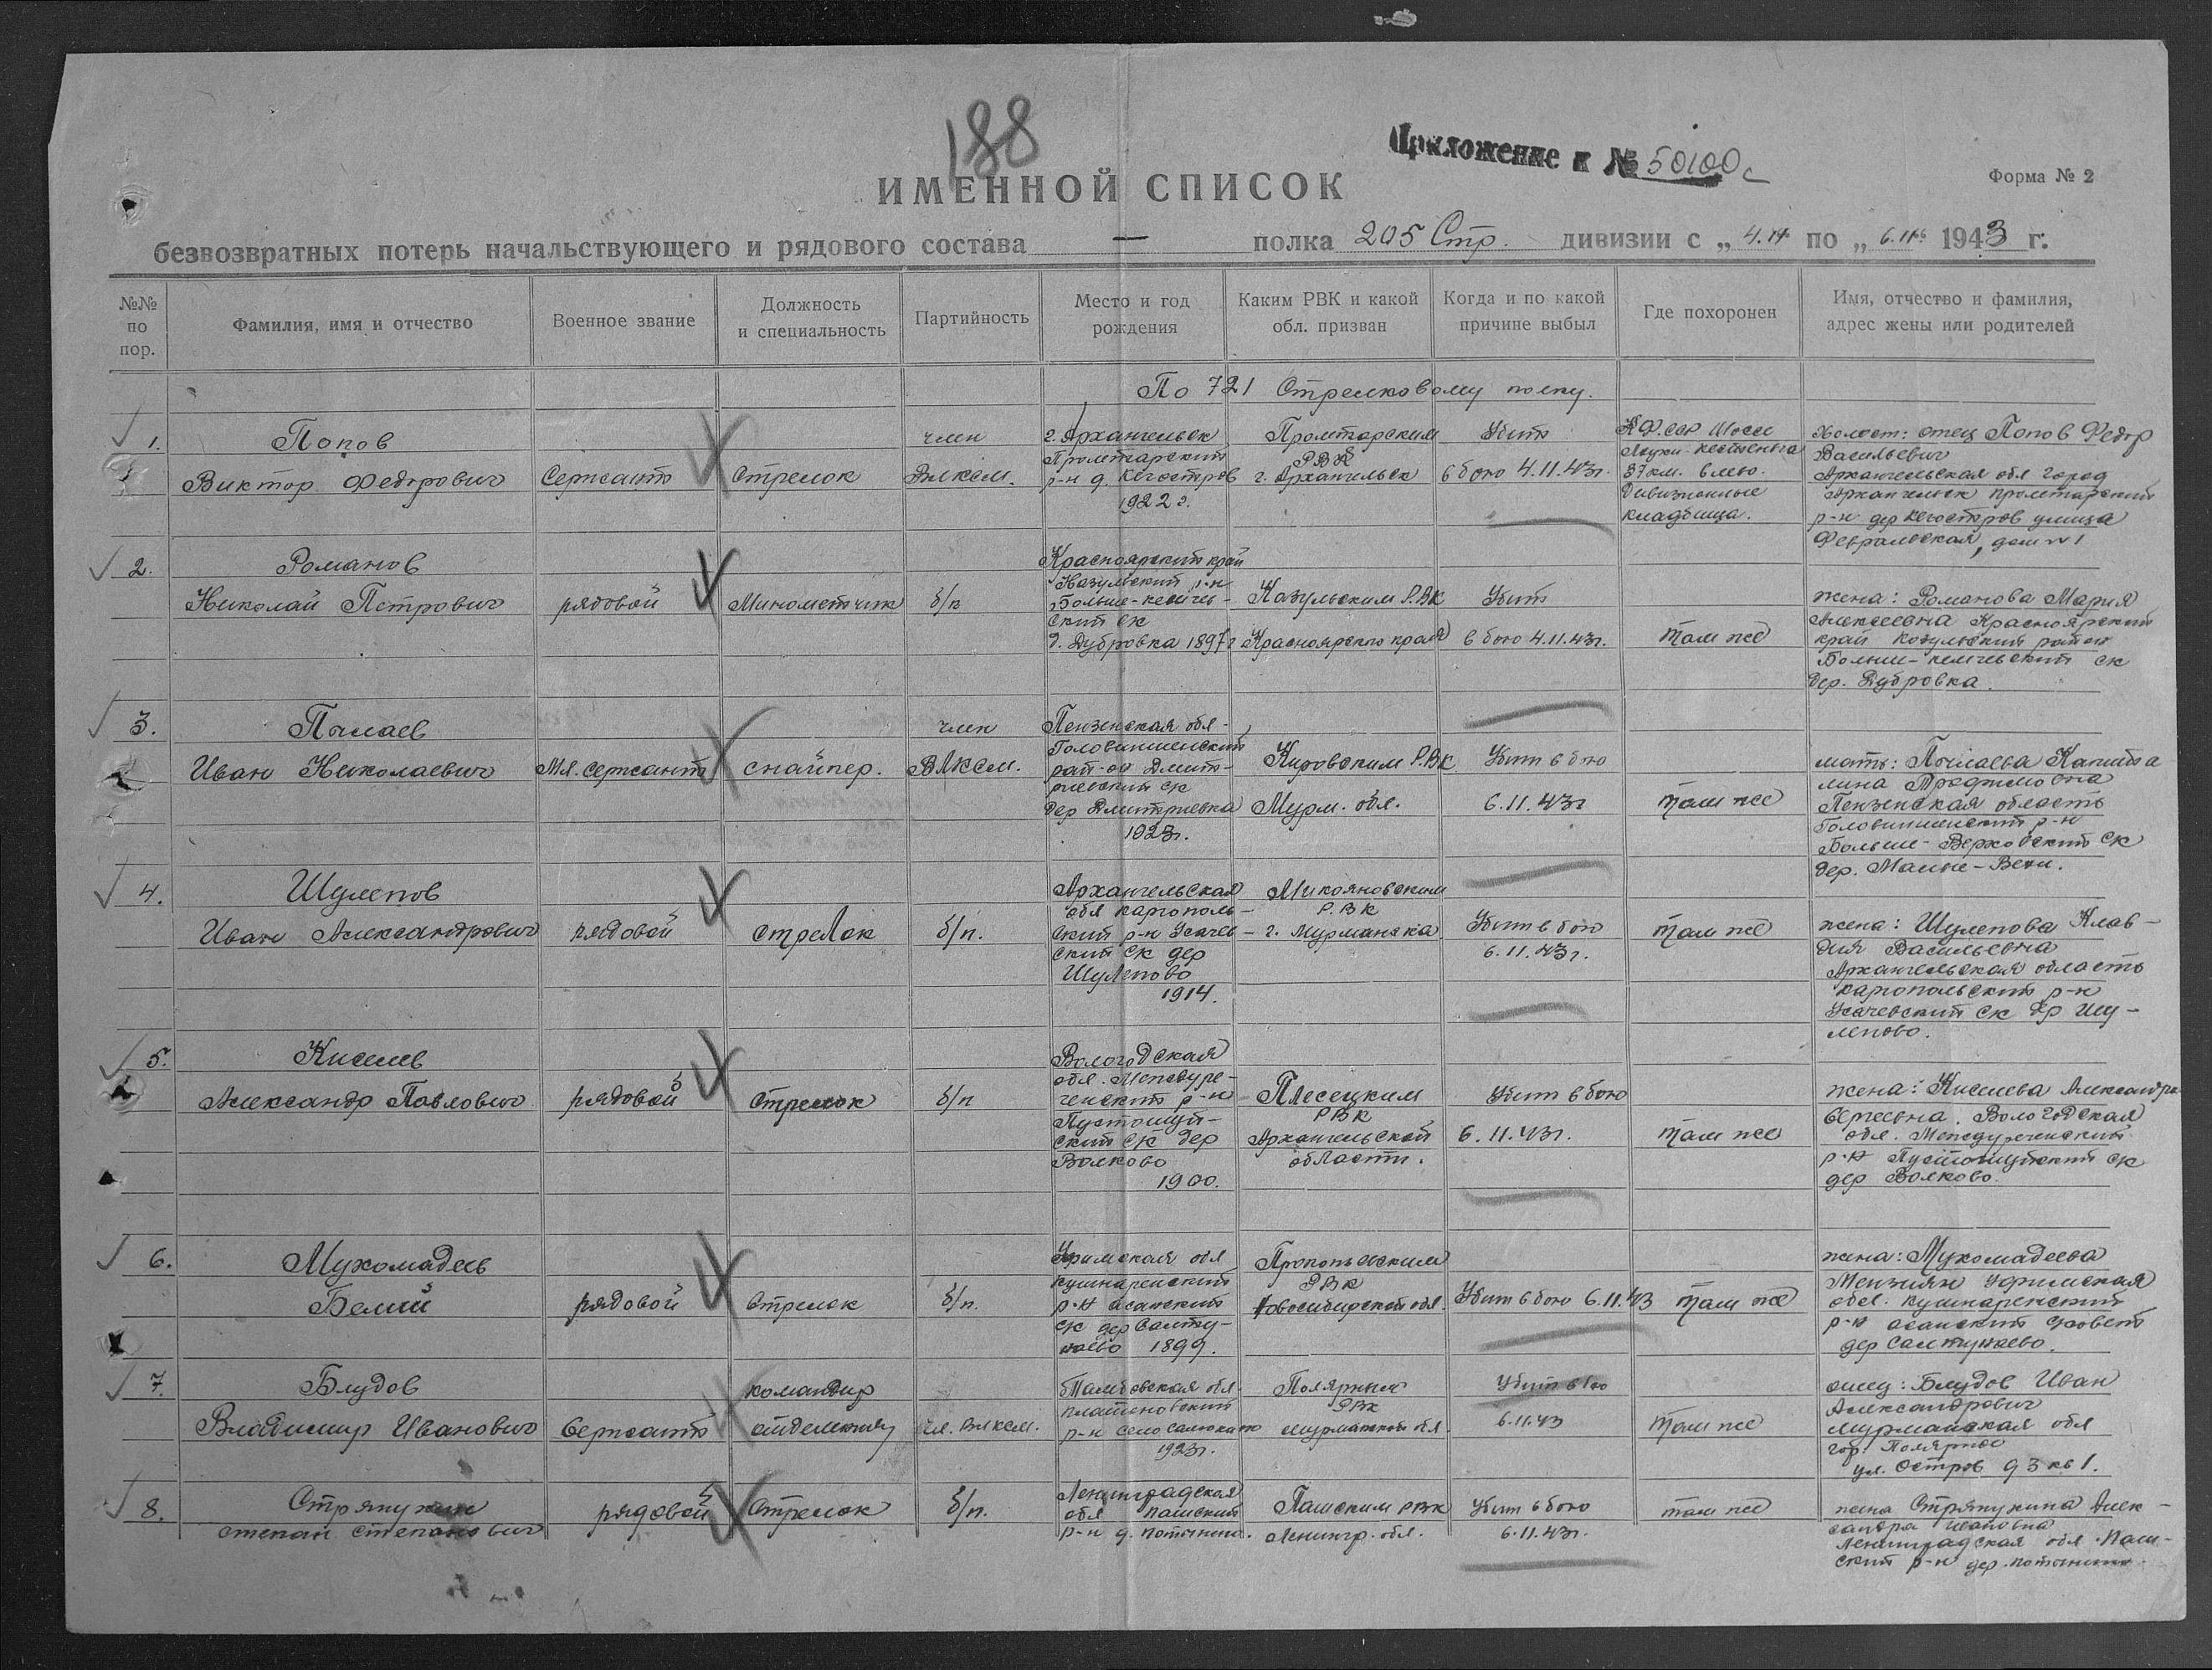 188
Приложение к № 50100с
Форма № 2
ИМЕННОЙ СПИСОК
безвозвратных потерь начальствующего и рядового состава — полка 205 Стр. дивизии с „ 4.11 по „ 6.11 1943 г.
№№ по пор.
Фамилия, имя и отчество
Военное звание
Должность и специальность
Партийность
Место и год рождения
Каким РВК и какой обл. призван
Когда и по какой причине выбыл
Где похоронен
Имя, отчество и фамилия, адрес жены или родителей
По 721 Стрелковому полку.
1.
Попов
Виктор Федорович
Сержант
Стрелок
член
ВЛКСМ.
г. Архангельск
Пролетарский
р-н д. Кегостров
1922 г.
Пролетарским
РВК
г. Архангельск
Убит
в бою 4.11.43г.
К.Ф.ССР Шоссе
Лоухи-Кестеньга
37 км. влево.
Дивизионные
кладбища.
Холост: отец Попов Федор
Васильевич
Архангельская обл город
Архангельск пролетарский
р-н дер Кегостров улица
Февральская, дом №1
2.
Романов
Николай Петрович
рядовой
Минометчик
б/п
Красноярский край
Казульский р-н
Больше-кемчев-
ский ск
д. Дубровка 1897г
Казульским Р.ВК
Красноярского края
Убит
в бою 4.11.43г.
там же
жена: Романова Мария
Алексеевна Красноярский
край Козульский район
Больше-кемчевский ск
дер. Дубровка.
3.
Пылаев
Иван Николаевич
Мл. сержант
снайпер.
член
ВЛКСМ.
Пензенская обл-
Головинщенский
рай-он Дмит-
риевский ск
дер Дмитриевка
1923г.
Кировским Р.ВК
Мурм. обл.
Убит в бою
6.11.43г
там же
мать: Пылаева Капито
лина Трофимовна
Пензенская область
Головинщенский р-н
Больше-Верховский ск
дер. Малые-Вехи.
4.
Шулепов
Иван Александрович
рядовой
стрелок
б/п.
Архангельская
обл каргополь-
ский р-н Усачев-
ский ск дер
Шулепово
1914.
Микояновским
Р.ВК
г. Мурманска
Убит в бою
6.11.43г.
там же
жена: Шулепова Клав-
дия Васильевна
Архангельская область
каргопольский р-н
Усачевский ск др Шу-
лепово.
5.
Киселев
Александр Павлович
рядовой
стрелок
б/п
Вологодская
обл. Междуре-
ченский р-н
Пустошуй-
ский ск дер
Волково
1900.
Плесецким
РВК
Архангельской
области.
Убит в бою
6.11.43г.
там же
жена: Киселева Александра
Сергеевна. Вологодская
обл. Междуреченский
р-н Пустошуйский ск
дер Волково.
6.
Мухомадеев
Белий
рядовой
Стрелок
б/п.
Уфимская обл
кушнаренский
р-н асанский
ск дер Салту-
наево 1899.
Прокопьевским
РВК
Новосибирской обл.
Убит в бою 6.11.43
там же
жена: Мухомадеева
Мензиян Уфимская
обл. кушнаренский
р-н асанский с/совет
дер Салтунаево.
7.
Блудов
Владимир Иванович
Сержант
командир
отделения
чл. ВЛКСМ.
Тамбовская обл.
платоновский
р-н село
1923г.
Полярным
РВК
мурманской обл
Убит в бою
6.11.43
там же
отец: Блудов Иван
Александрович
мурманская обл
гор. Полярное
ул. Остров 93 кв 1.
8.
Стряпухин
степан степанович
рядовой
Стрелок
б/п.
Ленинградская
обл пашский
р-н д.
Пашским РВК
Ленингр. обл.
Убит в бою
6.11.43г.
там же
жена Стряпухина Алек-
сандра Ивановна
Ленинградская обл. Паш-
ский р-н дер.